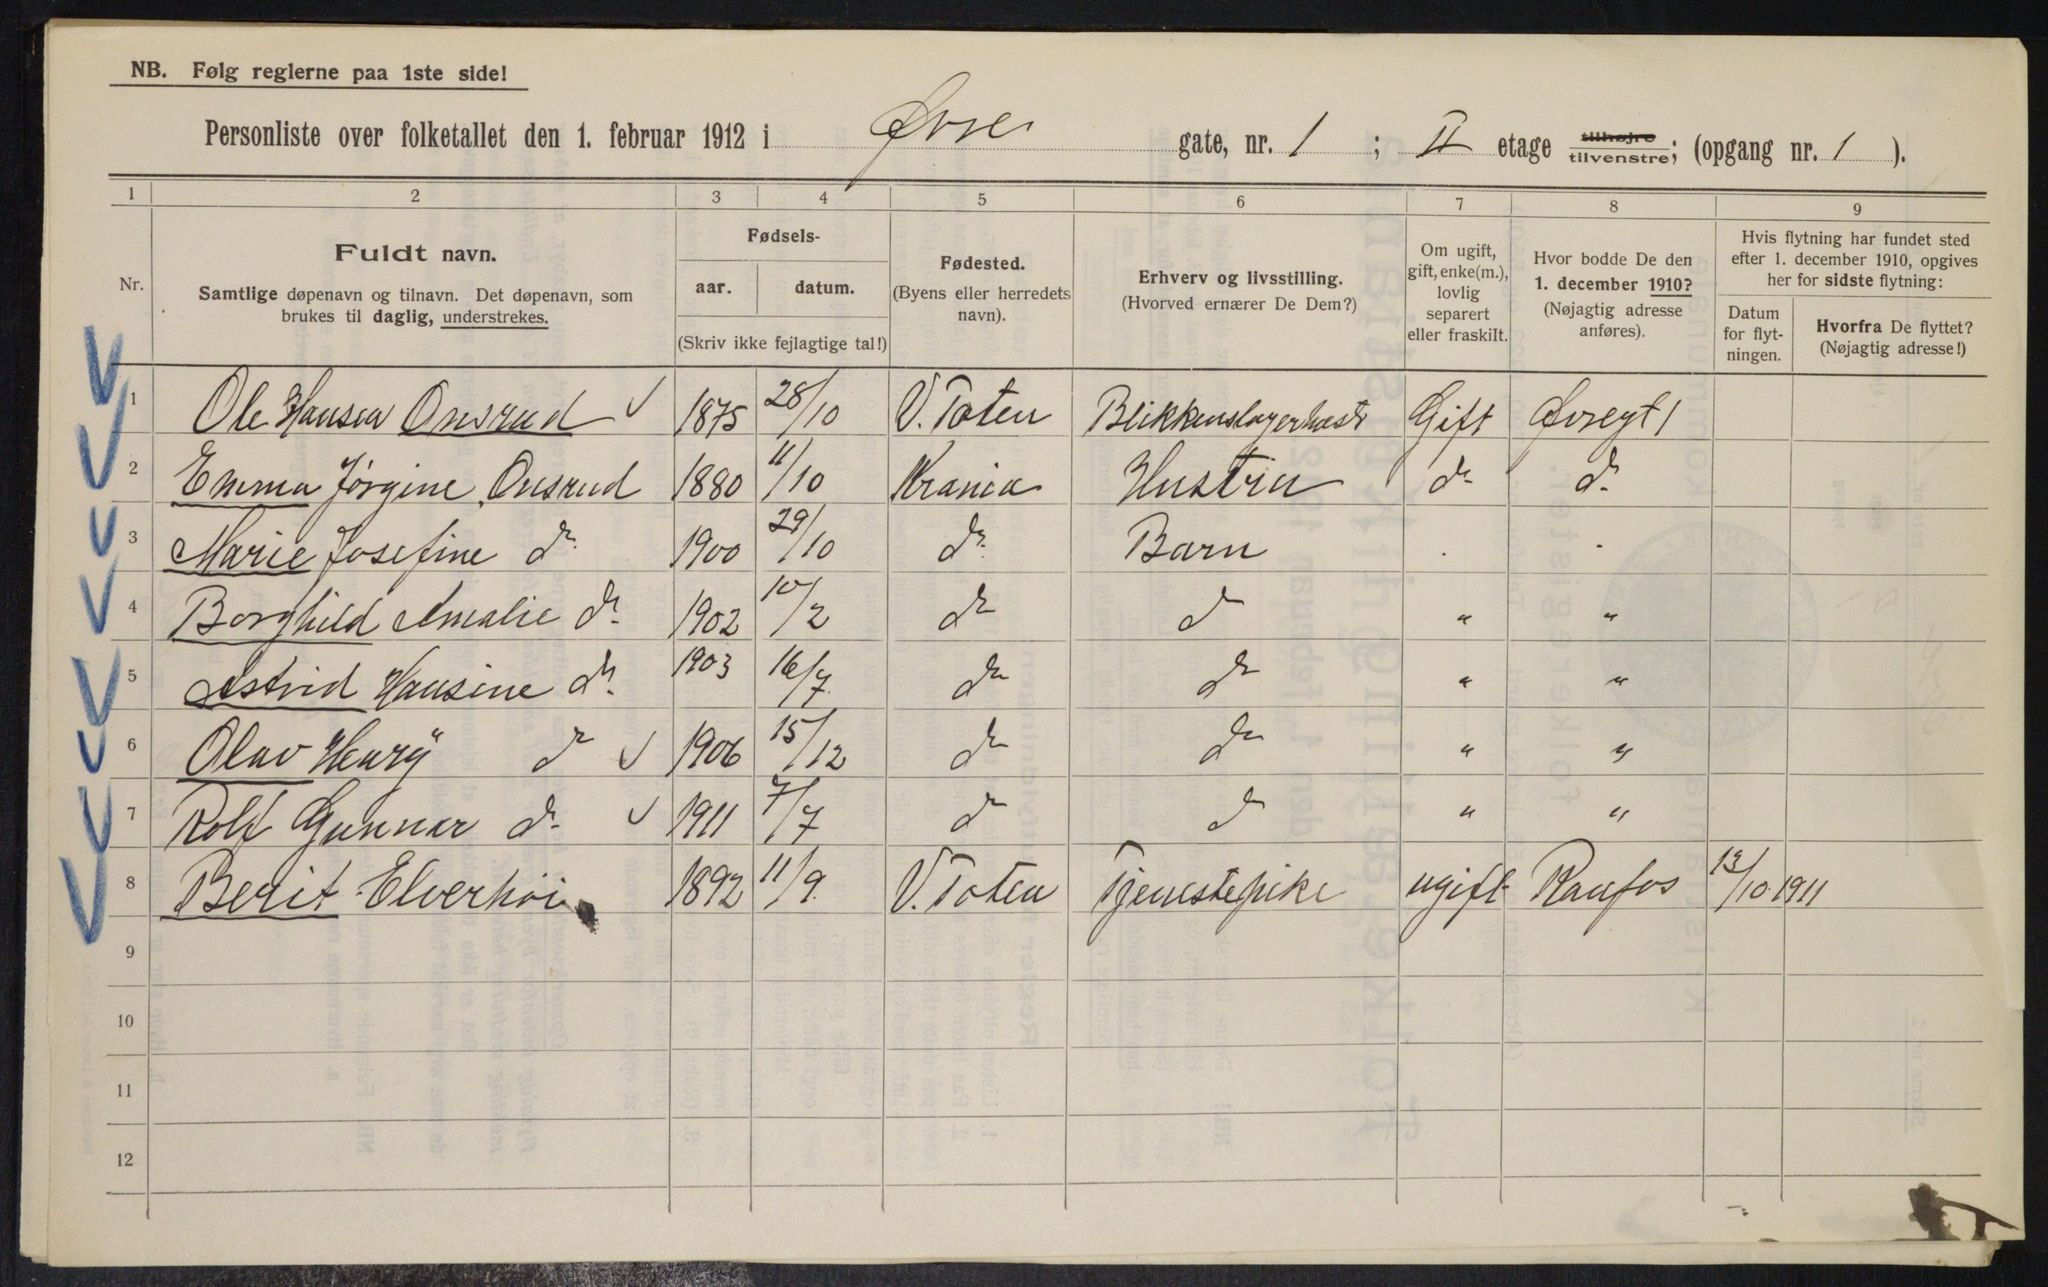 NB. Følg reglerne paa 1ste side!
Personliste over folketallet den 1. februar 1912 i Øvre gate, nr. 1 ; II etage tilhøjre tilvenstre; (opgang nr. 1 ).
1 2 3 4 5 6 7 8 9
Nr.
Fuldt navn.
Samtlige døpenavn og tilnavn. Det døpenavn, som
brukes til daglig, understrekes.
Fødsels-
aar. datum.
(Skriv ikke fejlagtige tal!)
Fødested.
(Byens eller herredets
navn).
Erhverv og livsstilling.
(Hvorved ernærer De Dem?)
Om ugift,
gift, enke(m.),
lovlig
separert
eller fraskilt.
Hvor bodde De den
1. december 1910?
(Nøjagtig adresse
anføres).
Hvis flytning har fundet sted
efter 1. december 1910, opgives
her for sidste flytning:
Datum
for flyt-
ningen.
Hvorfra De flyttet?
(Nøjagtig adresse!)
1 Ole Hansen Onsrud 1875 28/10 V. Toten Gift Øvregt 1
2 Emma Jørgine Onsrud 1880 11/10 Krania Hustru do do
3 Marie Josefine do 1900 29/10 do Barn
4 Borghild Amalie do 1902 10/2 do do " "
5 Astrid Hansine do 1903 16/7 do do " "
6 Olav Henry do 1906 15/12 do do " "
7 Rolf Gunnar do 1911 7/7 do do " "
8 Berit Elverhøi 1892 11/9 V. Toten Tjenestepike ugift Raufos 13/10 1911
9
10
11
12